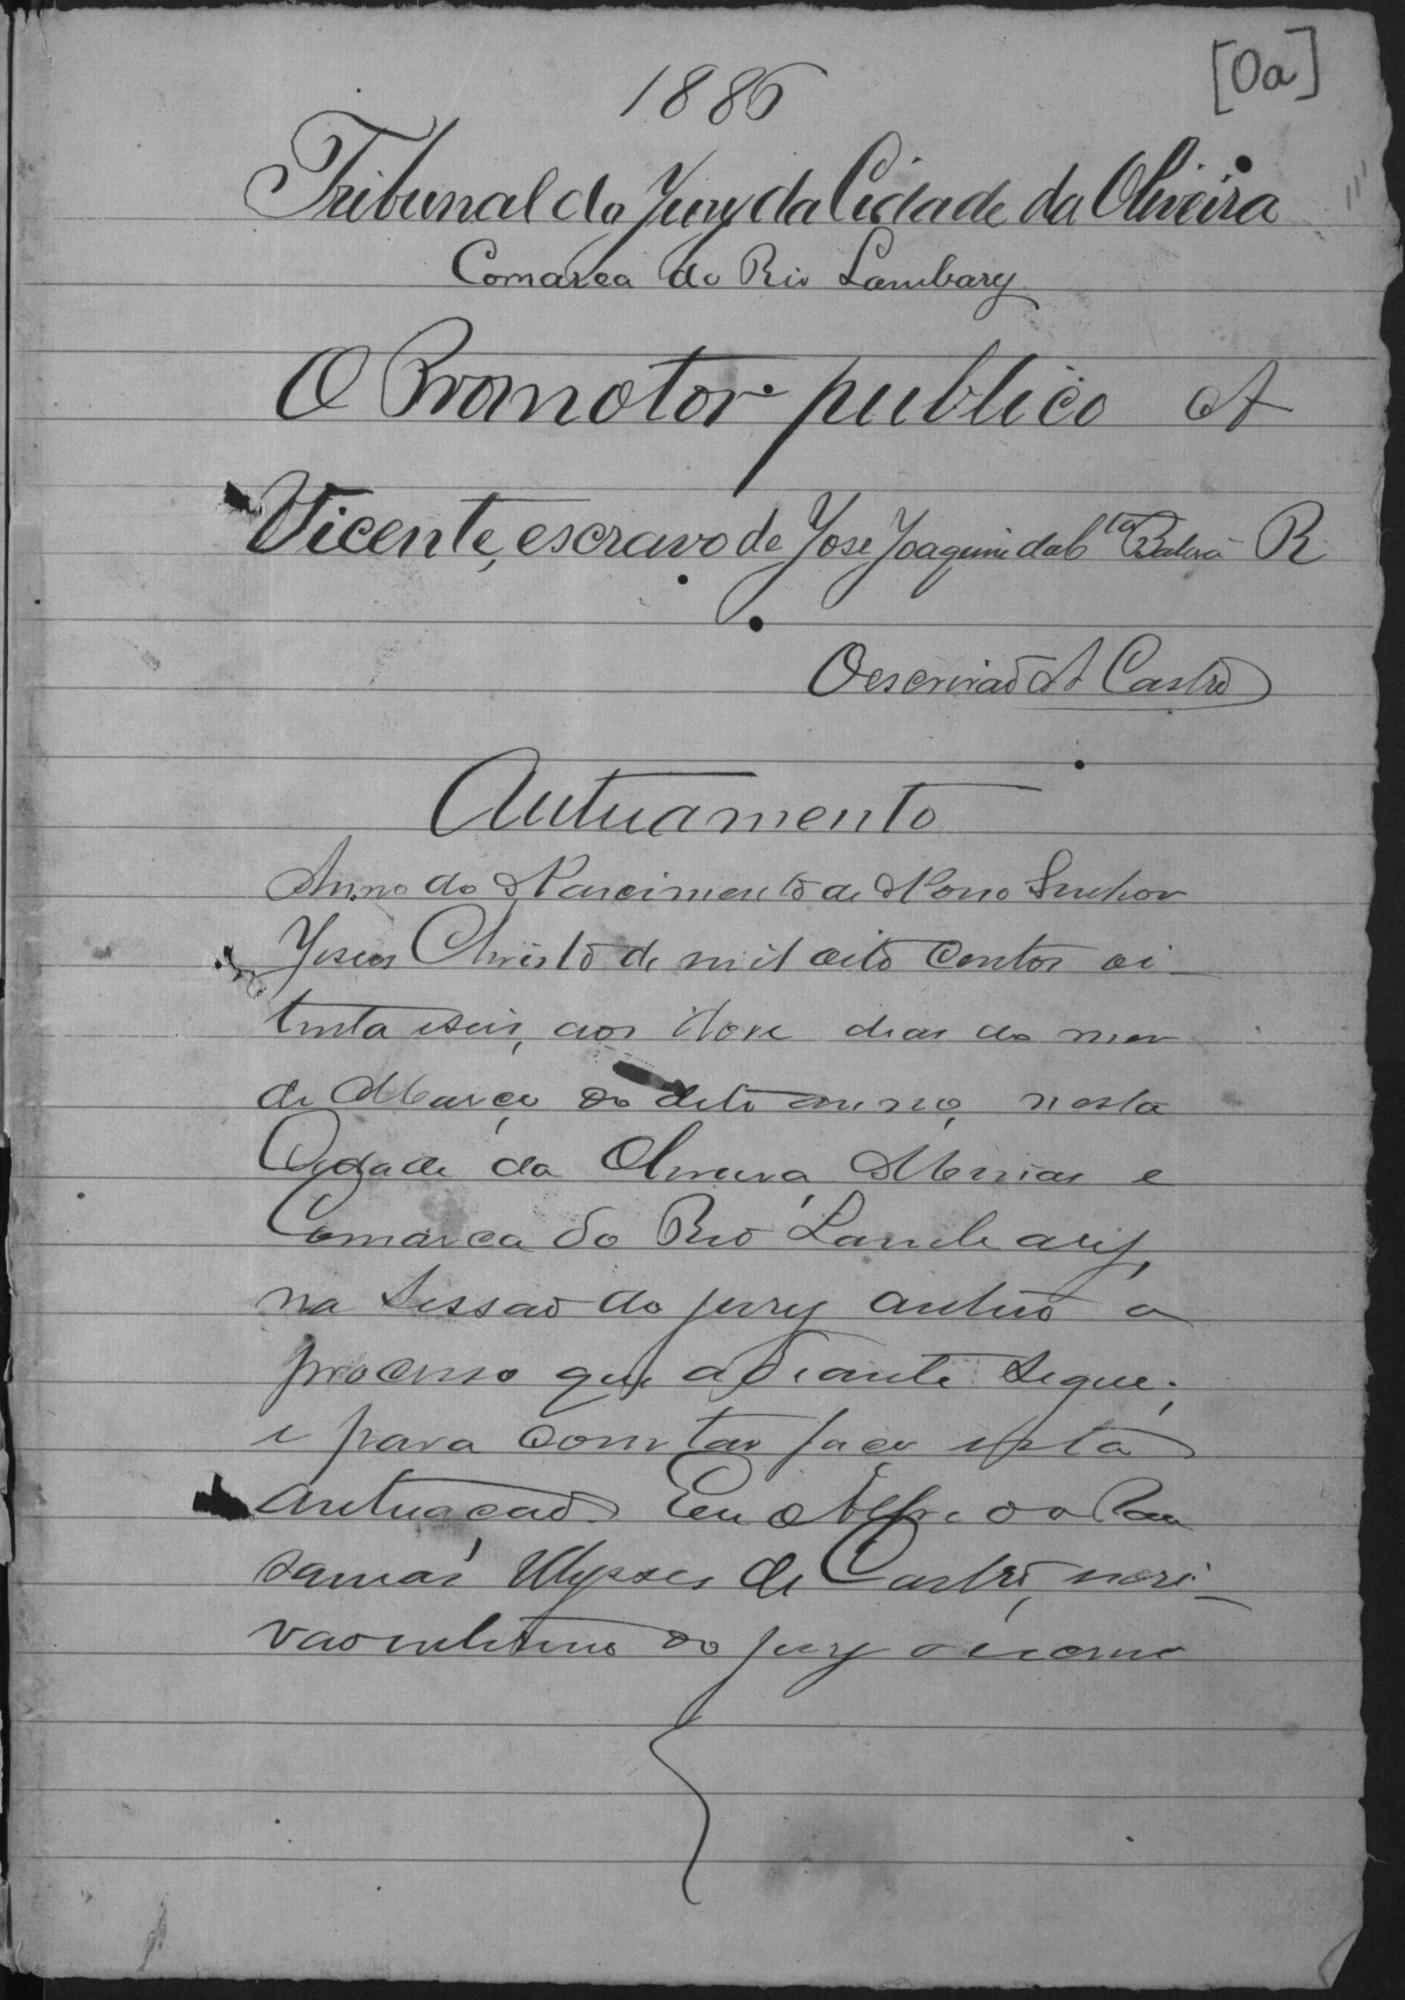 [0a]
1886
Tribunal do Jury da Cidade da Oliveira
Comarca do Rio Lambary
O Promotor publico A
Vicente, escravo de José Joaquim da C.ta R
O escrivão A Castro
Autuamento
Anno do Nascimento de Nosso Senhor
Jesus Christo de mil oito centos oi-
tenta e seis, aos nove dias do mez
de Março do dito anno, nesta
Cidade da Oliveira, Minas e
Comarca do Rio Lambary,
na Sessão do jury autúo o
processo que adiante segue;
e para constar faço esta
autuação. Eu Alfredo
Ulysses de Castro, escri-
vão interino do jury o escrevi